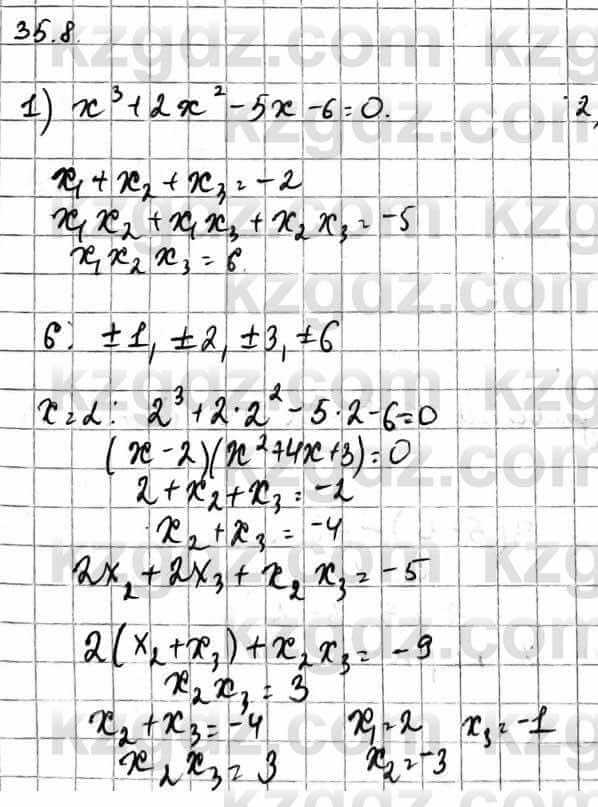 35.8.
1) x³+2x²-5x-6=0. 2,
x₁+x₂+x₃=-2
x₁x₂+x₁x₃+x₂x₃=-5
x₁x₂x₃=6.
6: ±1, ±2, ±3, ±6
x=2: 2³+2·2²-5·2-6=0
(x-2)(x²+4x+3)=0
2+x₂+x₃=-2
x₂+x₃=-4
2x₂+2x₃+x₂x₃=-5
2(x₂+x₃)+x₂x₃=-9
x₂x₃=3
x₂+x₃=-4 x₁=2 x₃=-1
x₂x₃=3 x₂=-3
kzgdz.com